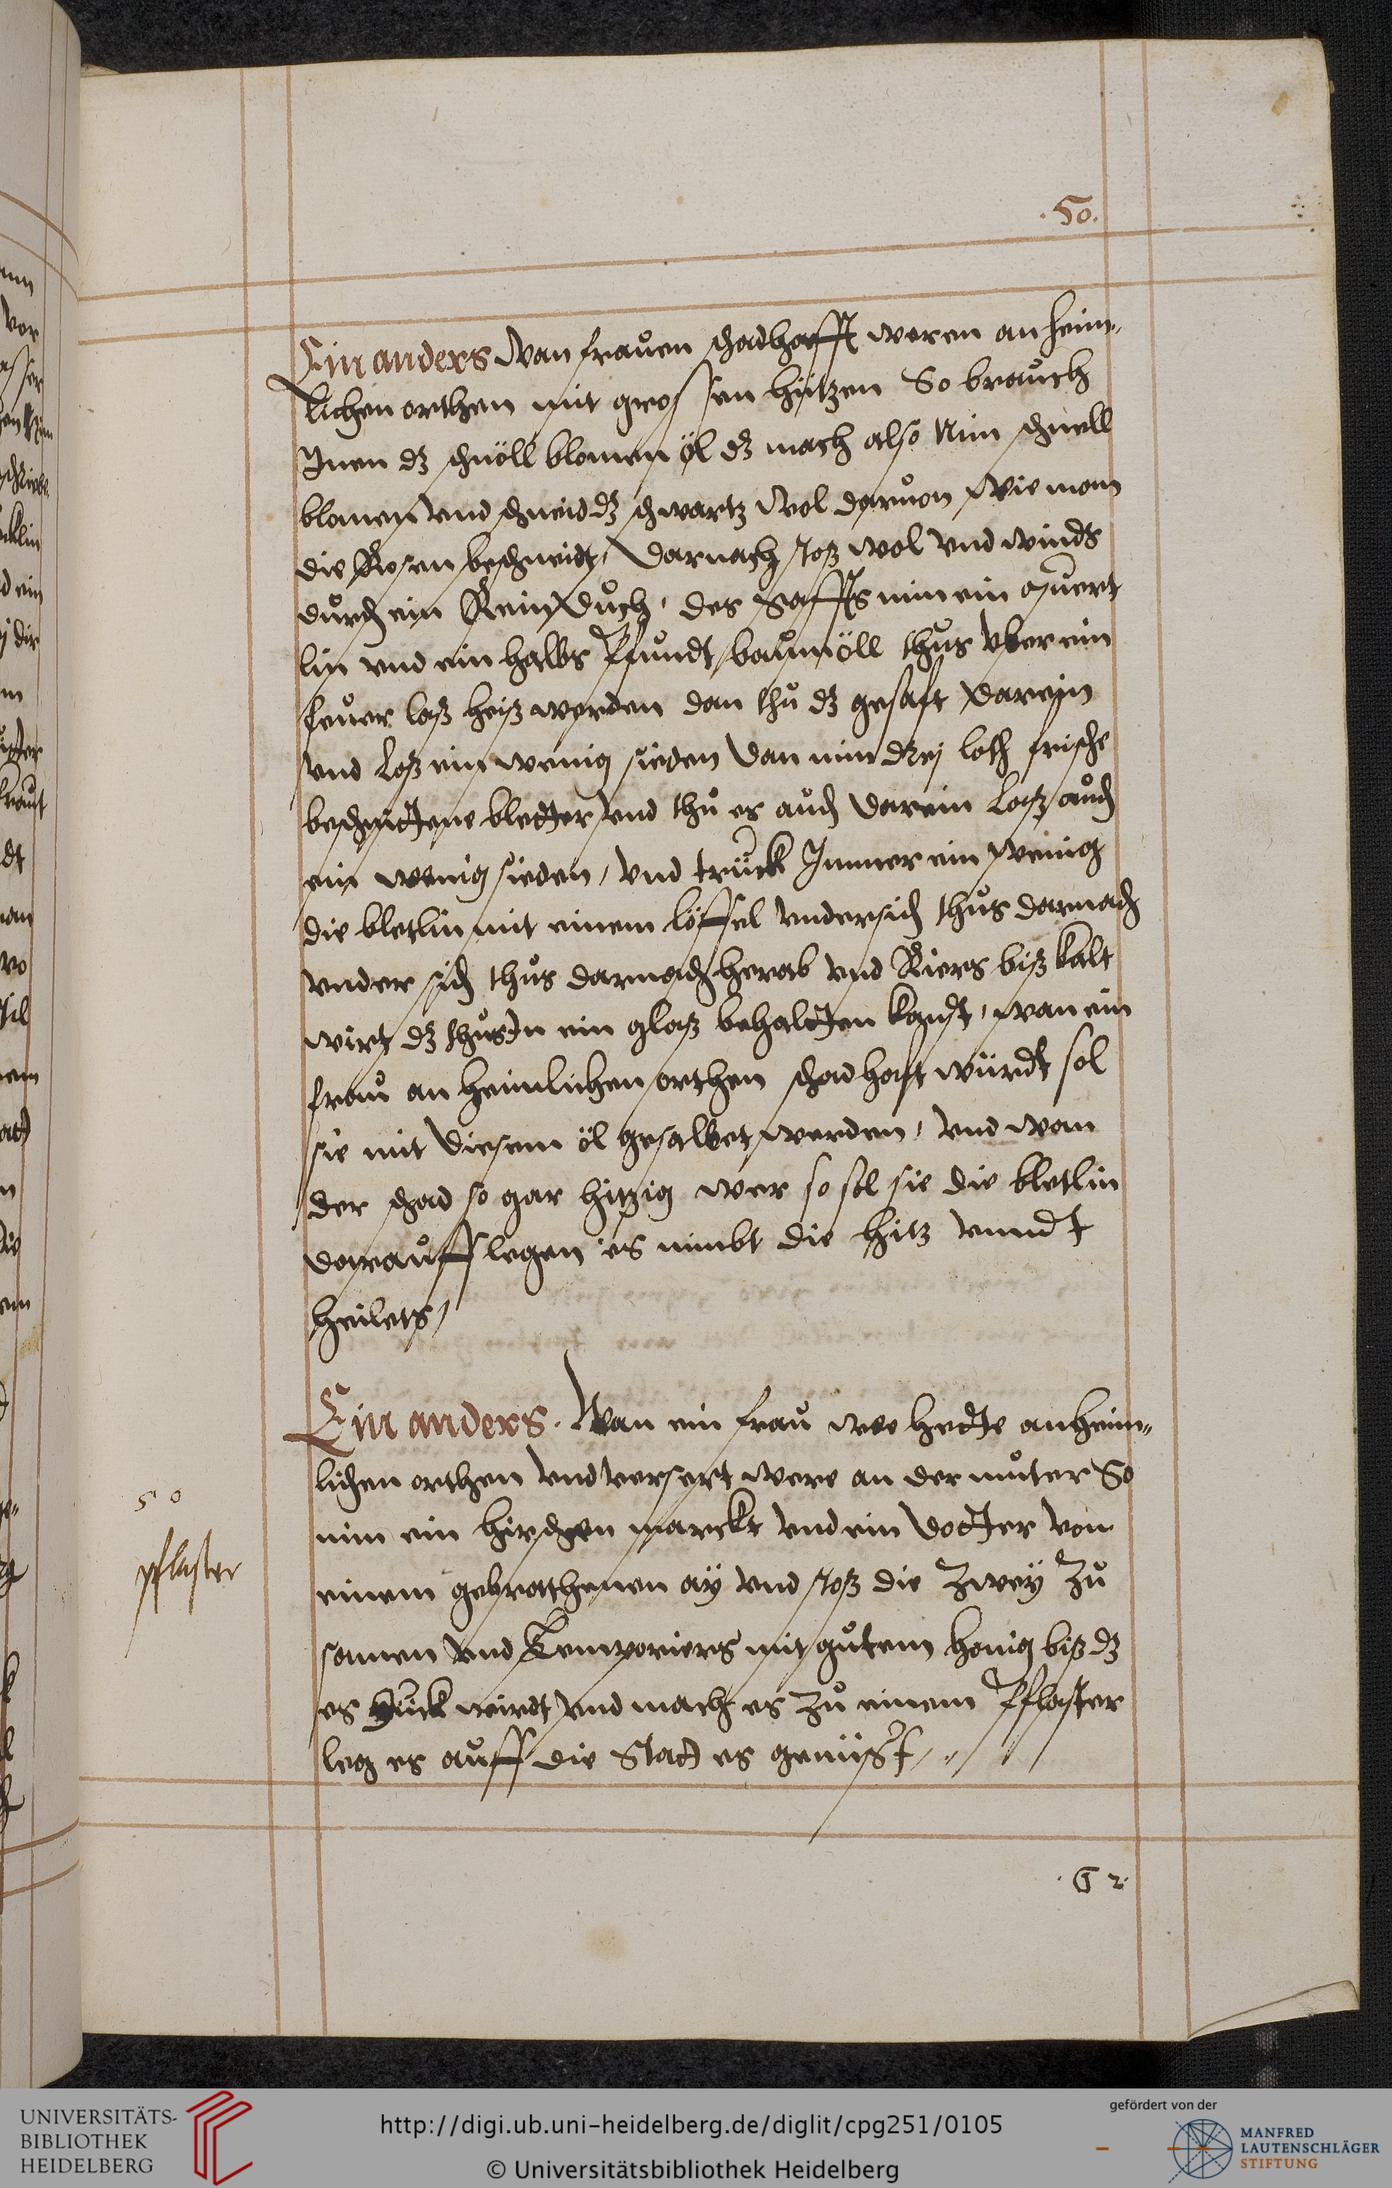 .50.
Ein anders Wan frauen schadhafft weren an heim„
lichen orthen mit grossen hitzen So brauch
Inen dz schnöll blomen öl dz mach also Nim schnell
blomen vnd schneid dz schwartz wol daruon wie man
die Rosen beschneidt, Darnach stoß wol vnd winds
durch ein Rein Duch, des Saffts nim ein quert
lin vnd ein halbs Pfundt baumöll thus vber ein
feuer laß heiß werden dan thu dz gesaft darein
vnd Loß ein wenig sieden dan nim drej loth frische
beschnittene bletter vnd thu es auch darein Laß auch
ein wenig sieden, vnd trück Immer ein wenig
die bletlin mit einem löffel vndersich thus darnach
vnder sich thus darnach herab vnd Riers biß kalt
wirt dz thus In ein glaß behaltten kanst, wan ein
frau an heimlichen orthen schadhaft würdt sol
sie mit diesem öl gesalbet werden, vnd wan
der schad so gar hitzig wer so sol sie die bletlin
darauff legen es nimbt die hitz vnndt
heilets,
Ein anders. Wan ein frau wee hette an heim„
lichen orthen vnd versert were an der muter So
nim ein hirschen marckt vnd ein Dotter von
einem gebrathenen aÿ vnd stoß die Zweÿ Zu
samen vnd Temporiers mit gutem honig biß dz
es dück wirdt vnd mach es Zu einem Pflaster
leg es auff die Statt es genüst,
50
pflaster
.G 2.
UNIVERSITÄTS-
BIBLIOTHEK
HEIDELBERG
http://digi.ub.uni-heidelberg.de/diglit/cpg251/0105
© Universitätsbibliothek Heidelberg
gefördert von der
MANFRED
LAUTENSCHLÄGER
STIFTUNG